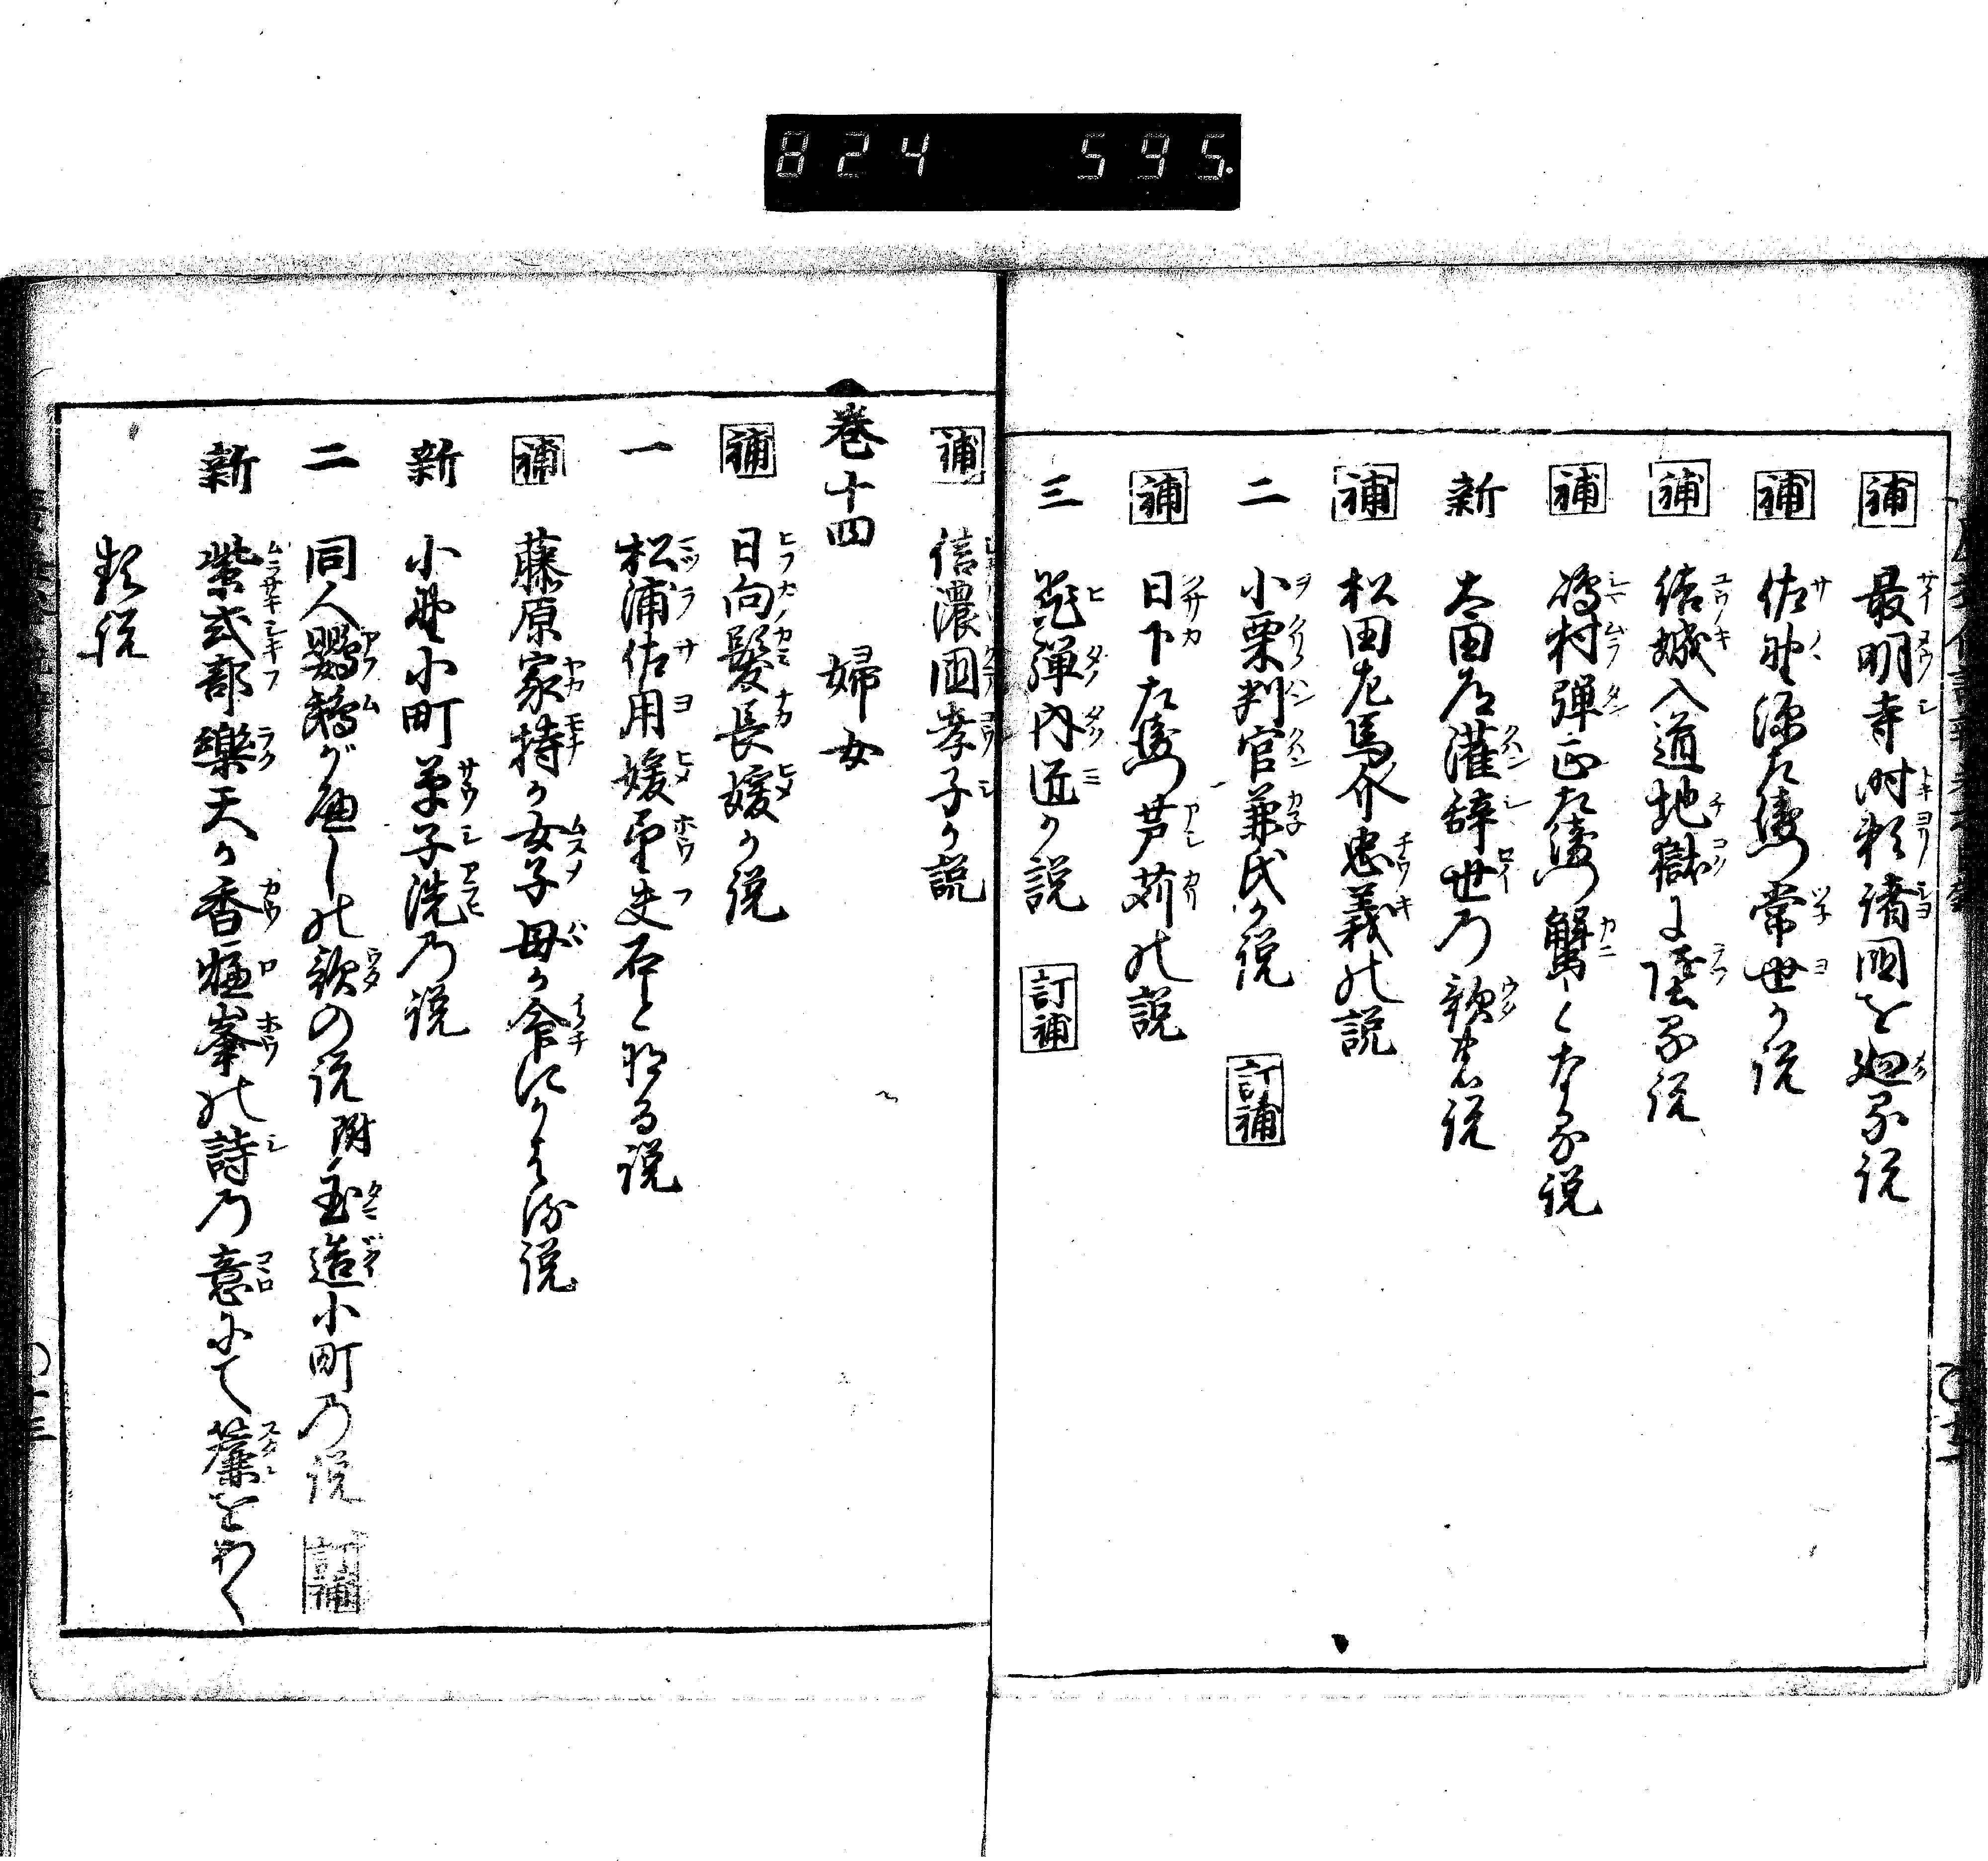 824 595.
補 最明寺時頼諸国を廻る説
補 佐野源左衛門常世か説
補 結城入道地獄に堕る説
補 嶋村弾正左衛門蟹となる説
新 太田道灌辞世乃歌の説
補 松田左馬介忠義の説
二 小栗判官兼氏か説 訂補
補 日下左衛門芦苅の説
三 飛弾内匠か説 訂補
補 信濃国孝子か説
巻十四 婦女
補 日向髪長媛か説
一 松浦佐用媛望夫石と化る説
補 藤原家持か女子母か命にかはる説
新 小野小町草子洗乃説
二 同人鸚鵡がへしの歌の説 附 玉造小町乃説 訂補
新 紫式部樂天か香炉峯の詩乃意にて簾をまく
類説